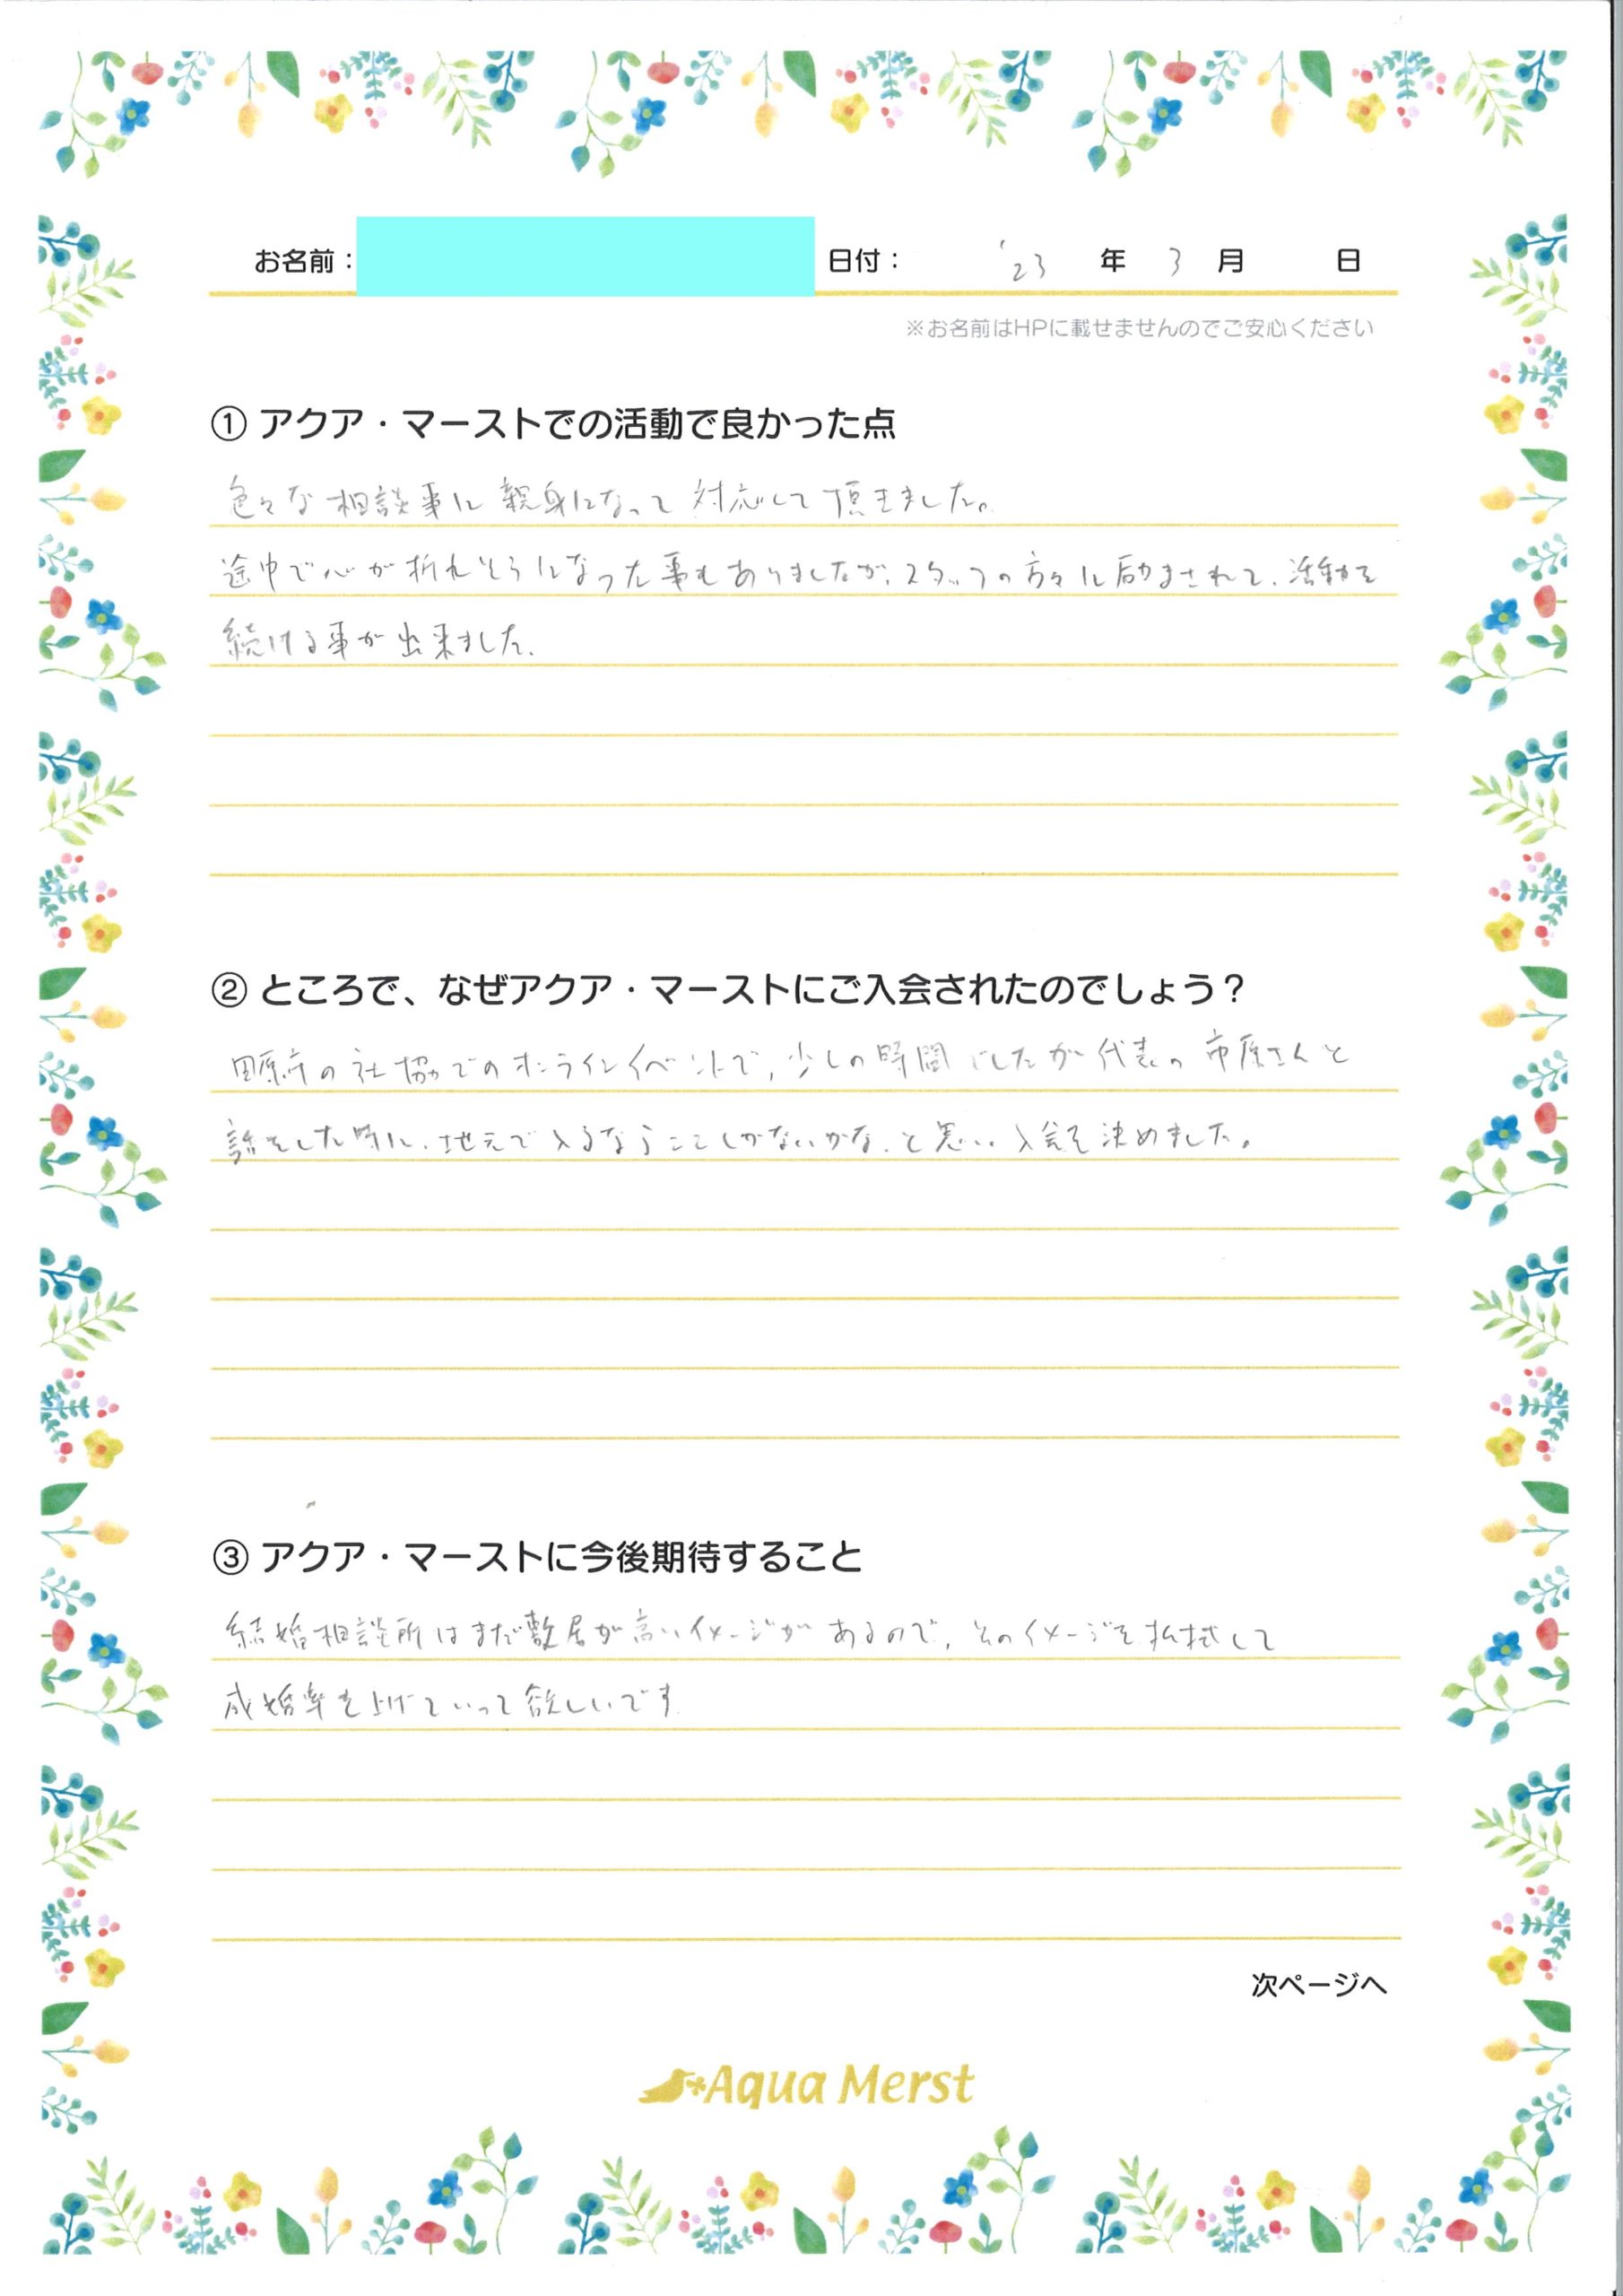 お名前： 日付： '23 年 3 月 日
※お名前はHPに載せませんのでご安心ください
① アクア・マーストでの活動で良かった点
色々な相談事に親身になって対応して頂きました。
途中で心が折れそうになった事もありましたが、スタッフの方々に励まされて、活動を
続ける事が出来ました。
② ところで、なぜアクア・マーストにご入会されたのでしょう？
田原市の社協でのオンラインイベントで、少しの時間でしたが代表の市原さんと
話をした時に、地元で入るならここしかないかな、と思い、入会を決めました。
③ アクア・マーストに今後期待すること
結婚相談所はまだ敷居が高いイメージがあるので、そのイメージを払拭して
成婚率を上げていって欲しいです
次ページへ
Aqua Merst